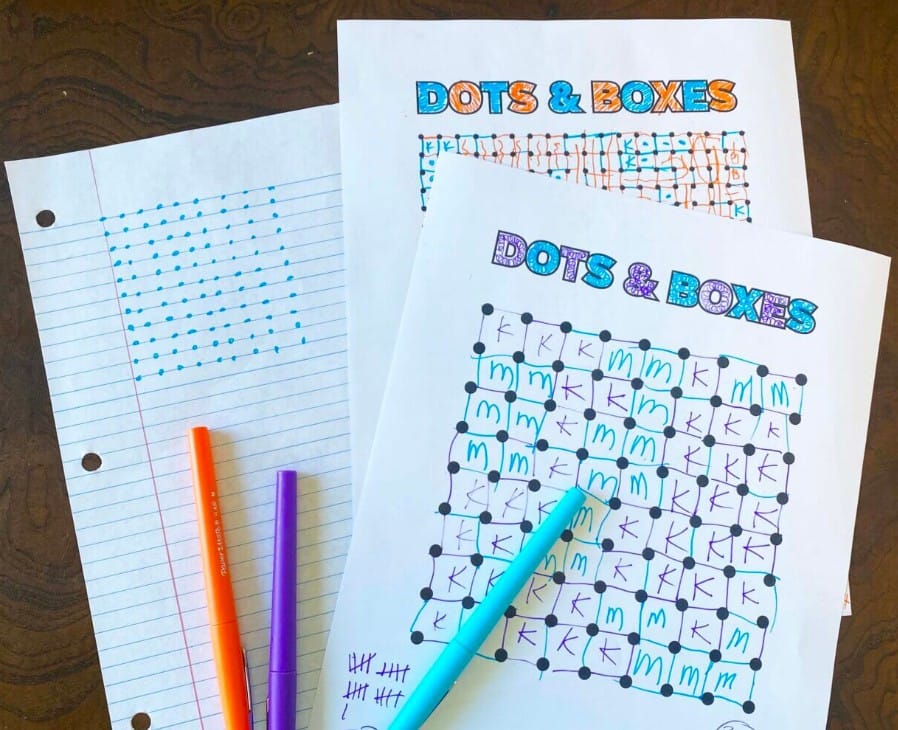 DOTS & BOXES
K K K
K
B
K
DOTS & BOXES
K K K m m K m m
m m K K m K K K
m m K m m K K K
m m K m m K K K
K K K m K K K K
K K m m K K K K
K K K K m m K m
K K K K m m m